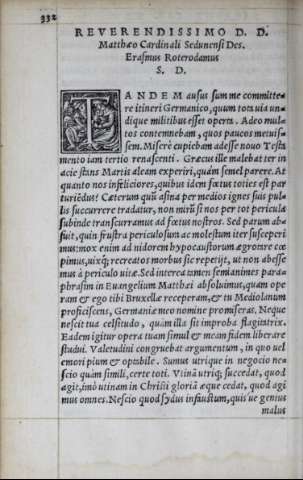 332
REVERENDISSIMO D. D.
Matthæo Cardinali Sedunensi Des.
Erasmus Roterodamus
S. D.
TANDEM ausus sum me committe-
re itineri Germanico, quum tota uia un-
dique militibus esset operta. Adeo mul-
tos contemnebam, quos paucos metuis-
sem. Miserè cupiebam adesse nouo Testa
mento iam tertio renascenti. Græcus ille malebat ter in
acie stans Martis aleam experiri, quàm semel parere. At
quanto nos infeliciores, quibus idem fœtus toties est par
turiēdus? Cæterum quū asina per medios ignes suis pul-
lis succurrere tradatur, non mirū si nos per tot pericula
subinde transcurramus ad fœtus nostros. Sed parum ab-
fuit, quin frustra periculosum ac molestum iter susceperi
mus: mox enim ad nidorem hypocaustorum ægrotare cœ
pimus, uixq; recreatos morbus sic repetijt, ut non abesse
mus à periculo uitæ. Sed interea tamen semianimes para-
phrasim in Euangelium Matthæi absoluimus, quam ope
ram & ego tibi Bruxellæ receperam, & tu Mediolanum
proficiscens, Germaniæ meo nomine promiseras. Neque
nescit tua celsitudo, quàm illa sit improba flagitatrix.
Eadem igitur opera tuam simul & meam fidem liberare
studui. Valetudini congruebat argumentum, in quo uel
emori pium & optabile. Sumus utrique in negocio ne-
scio quàm simili, certe toti. Vtinā utriq; succedat, quod
agit, imò utinam in Christi gloriā æque cedat, quod agi
mus omnes. Nescio quod sydus infaustum, quis ue genius
malus